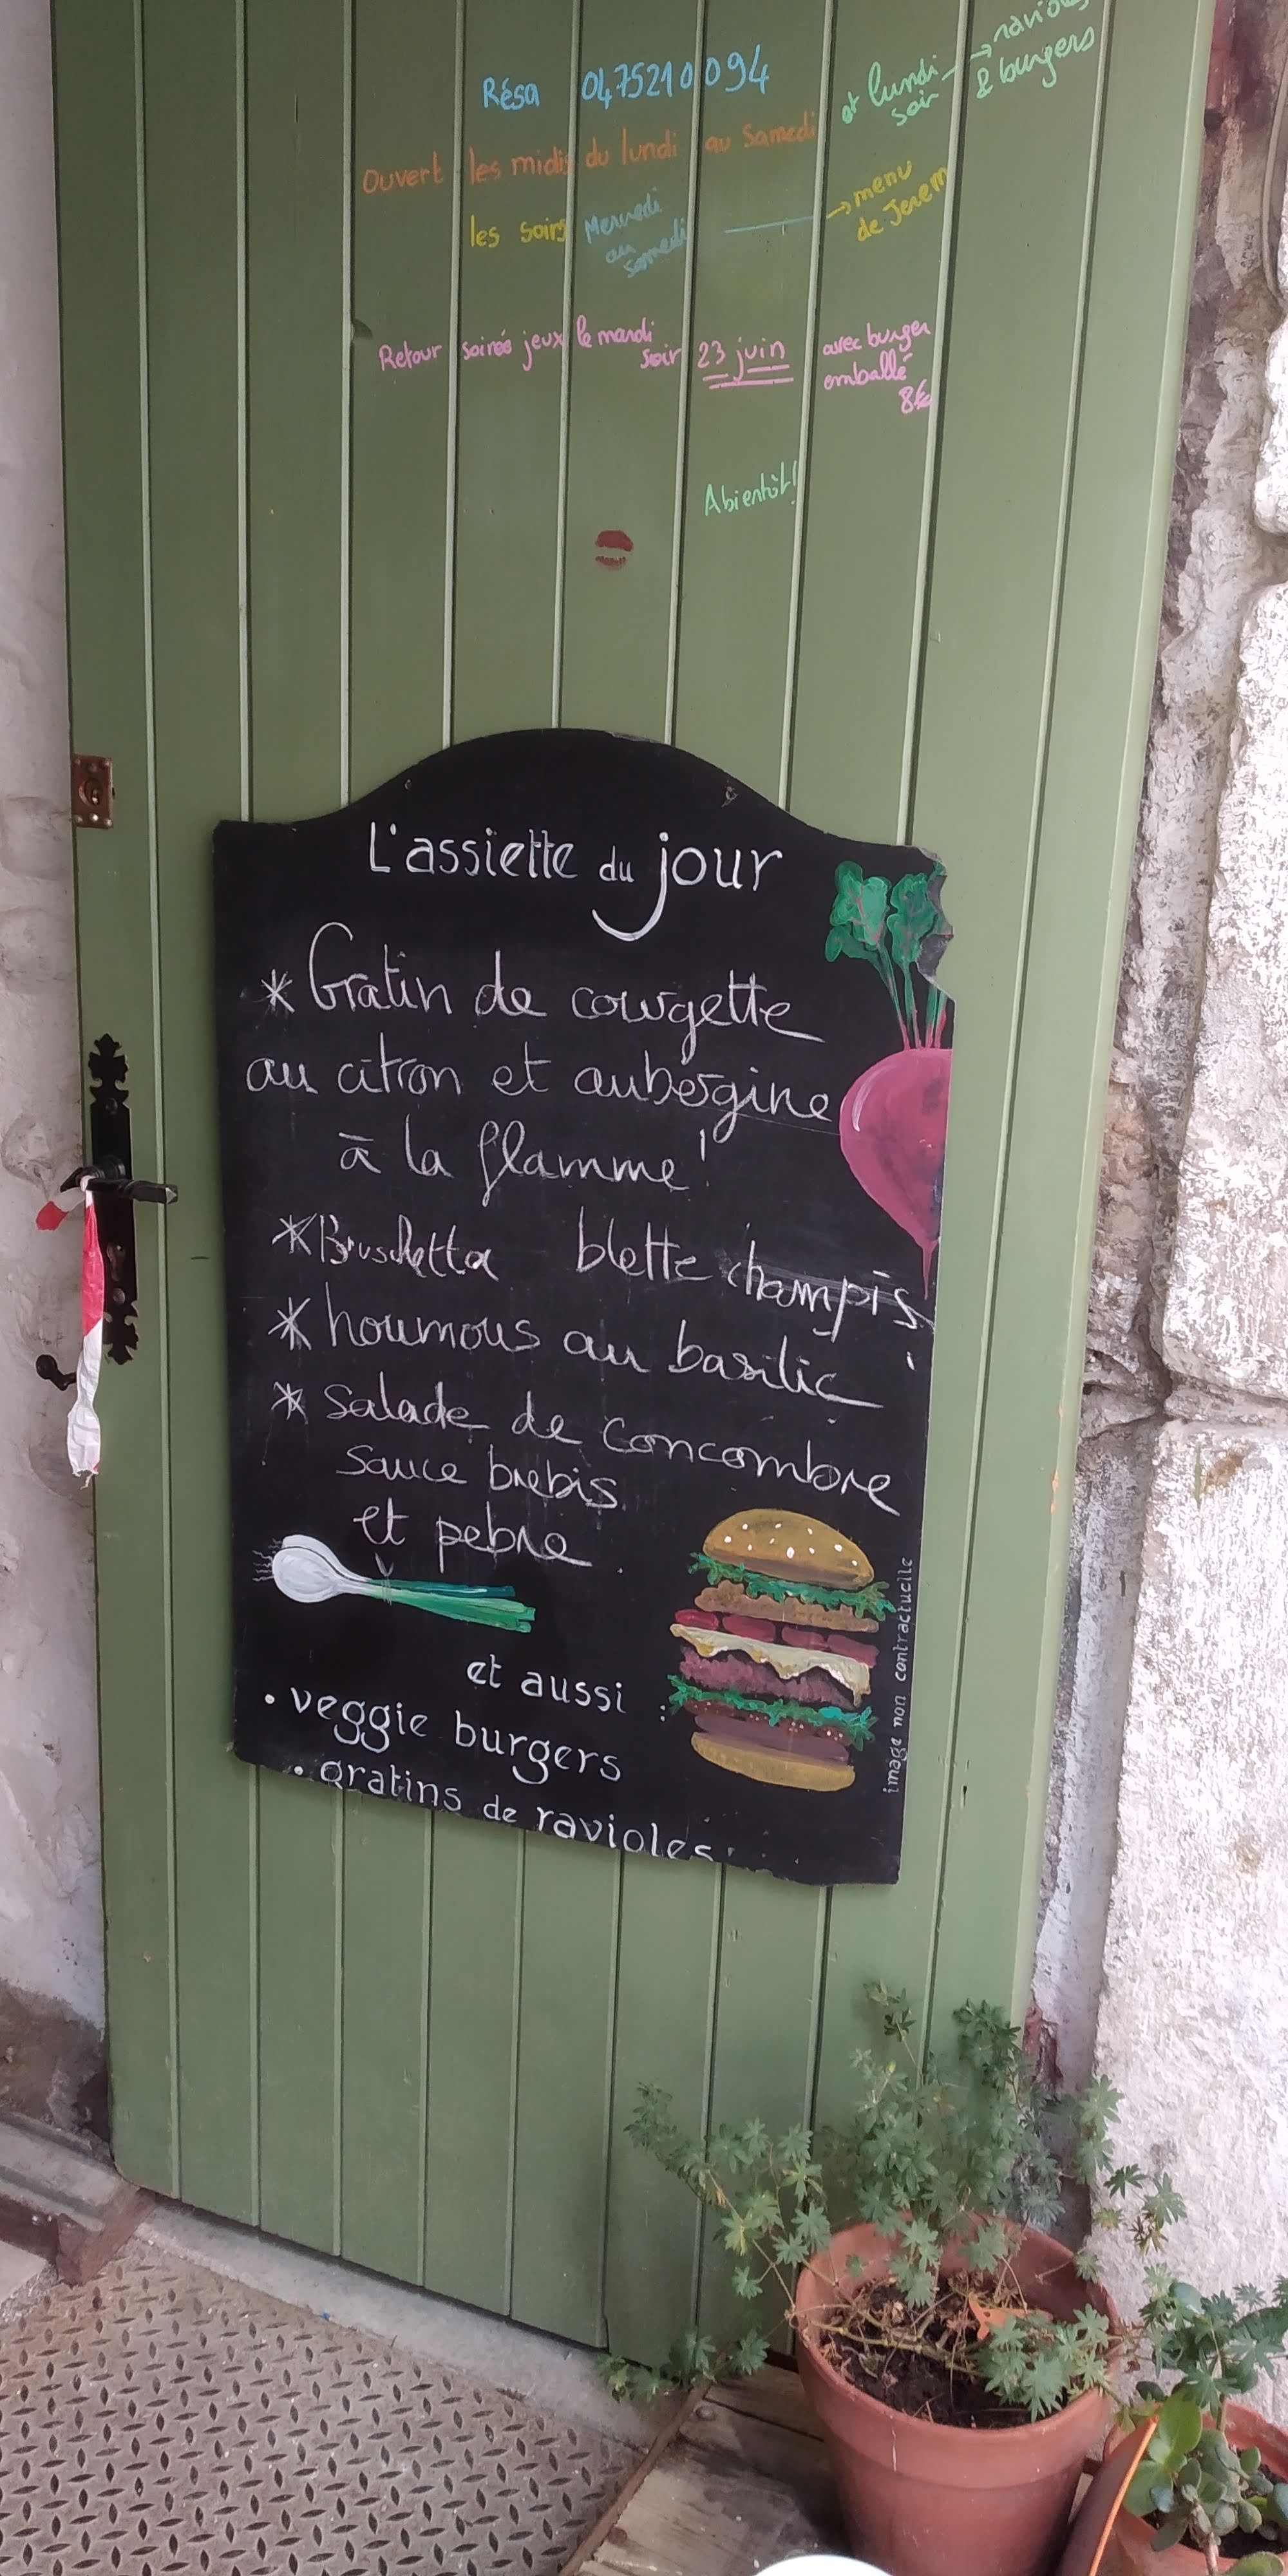 Résa 0475210094
et lundi soir → ravioles & burgers
Ouvert les midis du lundi au Samedi
les soirs Mercredi au samedi → menu de Jerem
Retour soirée jeux le mardi soir 23 juin avec burger emballé 8€
Abientôt!
L'assiette du jour
* Gratin de courgette
au citron et aubergine
à la flamme!
* Bruschetta blette champis
* houmous au basilic
* Salade de concombre
sauce brebis
et pebre.
et aussi :
• veggie burgers
• gratins de ravioles
image non contractuelle